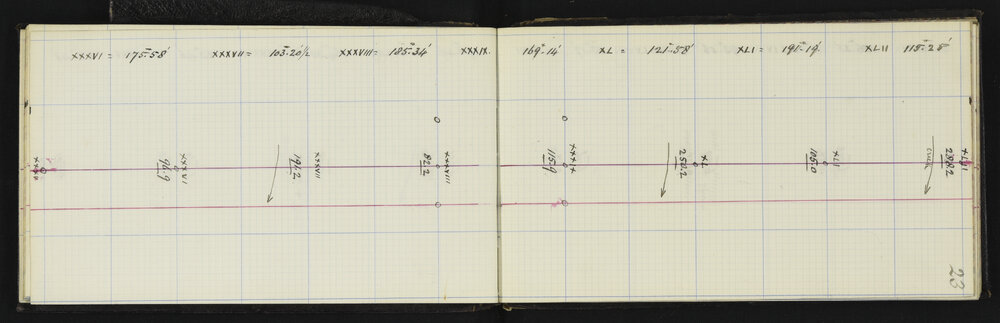 XXXVI = 175°-58' XXXVII = 103°-20½' XXXVIII = 185°-34' XXXIX. 169°-14' XL = 121°-58' XLI = 191°-19' XLII 118°-28'
XXXV
XXXVI
96.9
XXXVII
197.2
XXXVIII
82.2
XXXIX
115.9
XL
250.2
XLI
105.0
XLII
288.2
23